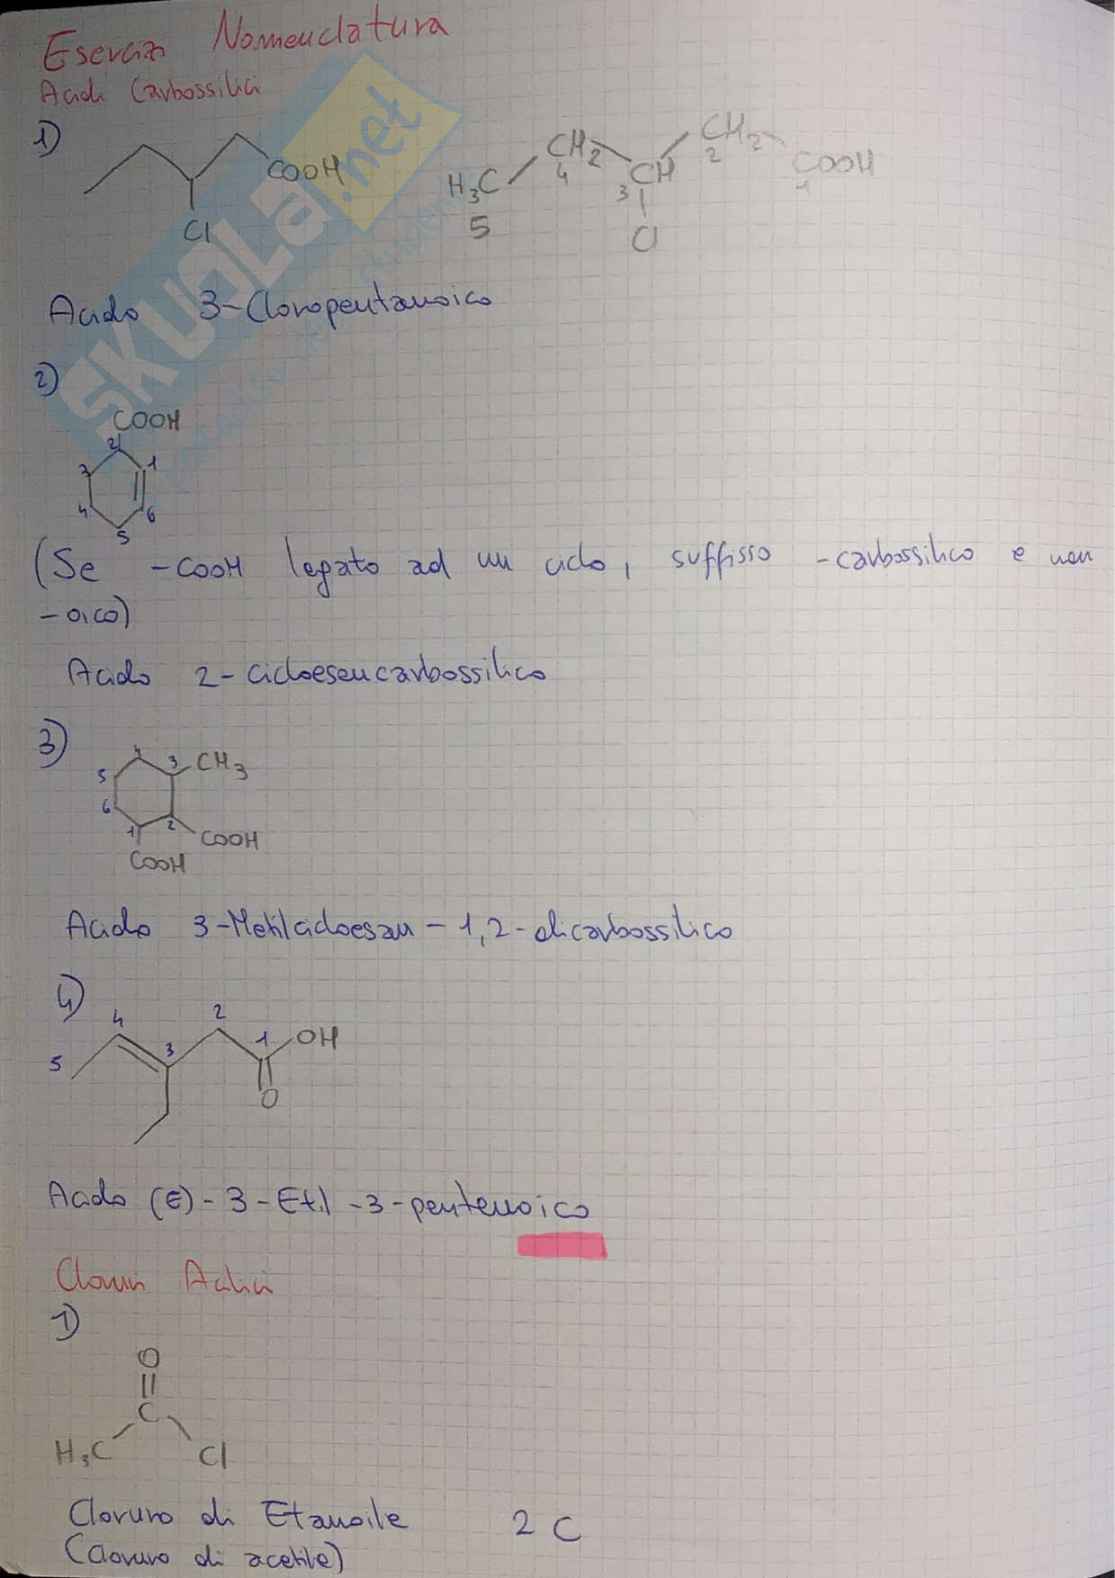 Esercizi Nomenclatura
Acidi Carbossilici
1)
COOH
Cl
H3C CH2 CH CH2 COOH
5 4 3 2 1
Cl
Acido 3-Cloropentanoico
2)
COOH
2 1
3
4 6
5
(Se -COOH legato ad un ciclo, suffisso -carbossilico e non
-oico)
Acido 2-cicloesencarbossilico
3)
4 3 CH3
5
6
1 2 COOH
COOH
Acido 3-Metilcicloesan-1,2-dicarbossilico
4)
4 2
5 3 1 OH
O
Acido (E)-3-Etil-3-pentenoico
Cloruri Acilici
1)
O
C
H3C Cl
Cloruro di Etanoile 2 C
(Cloruro di acetile)
SKUOLA.net